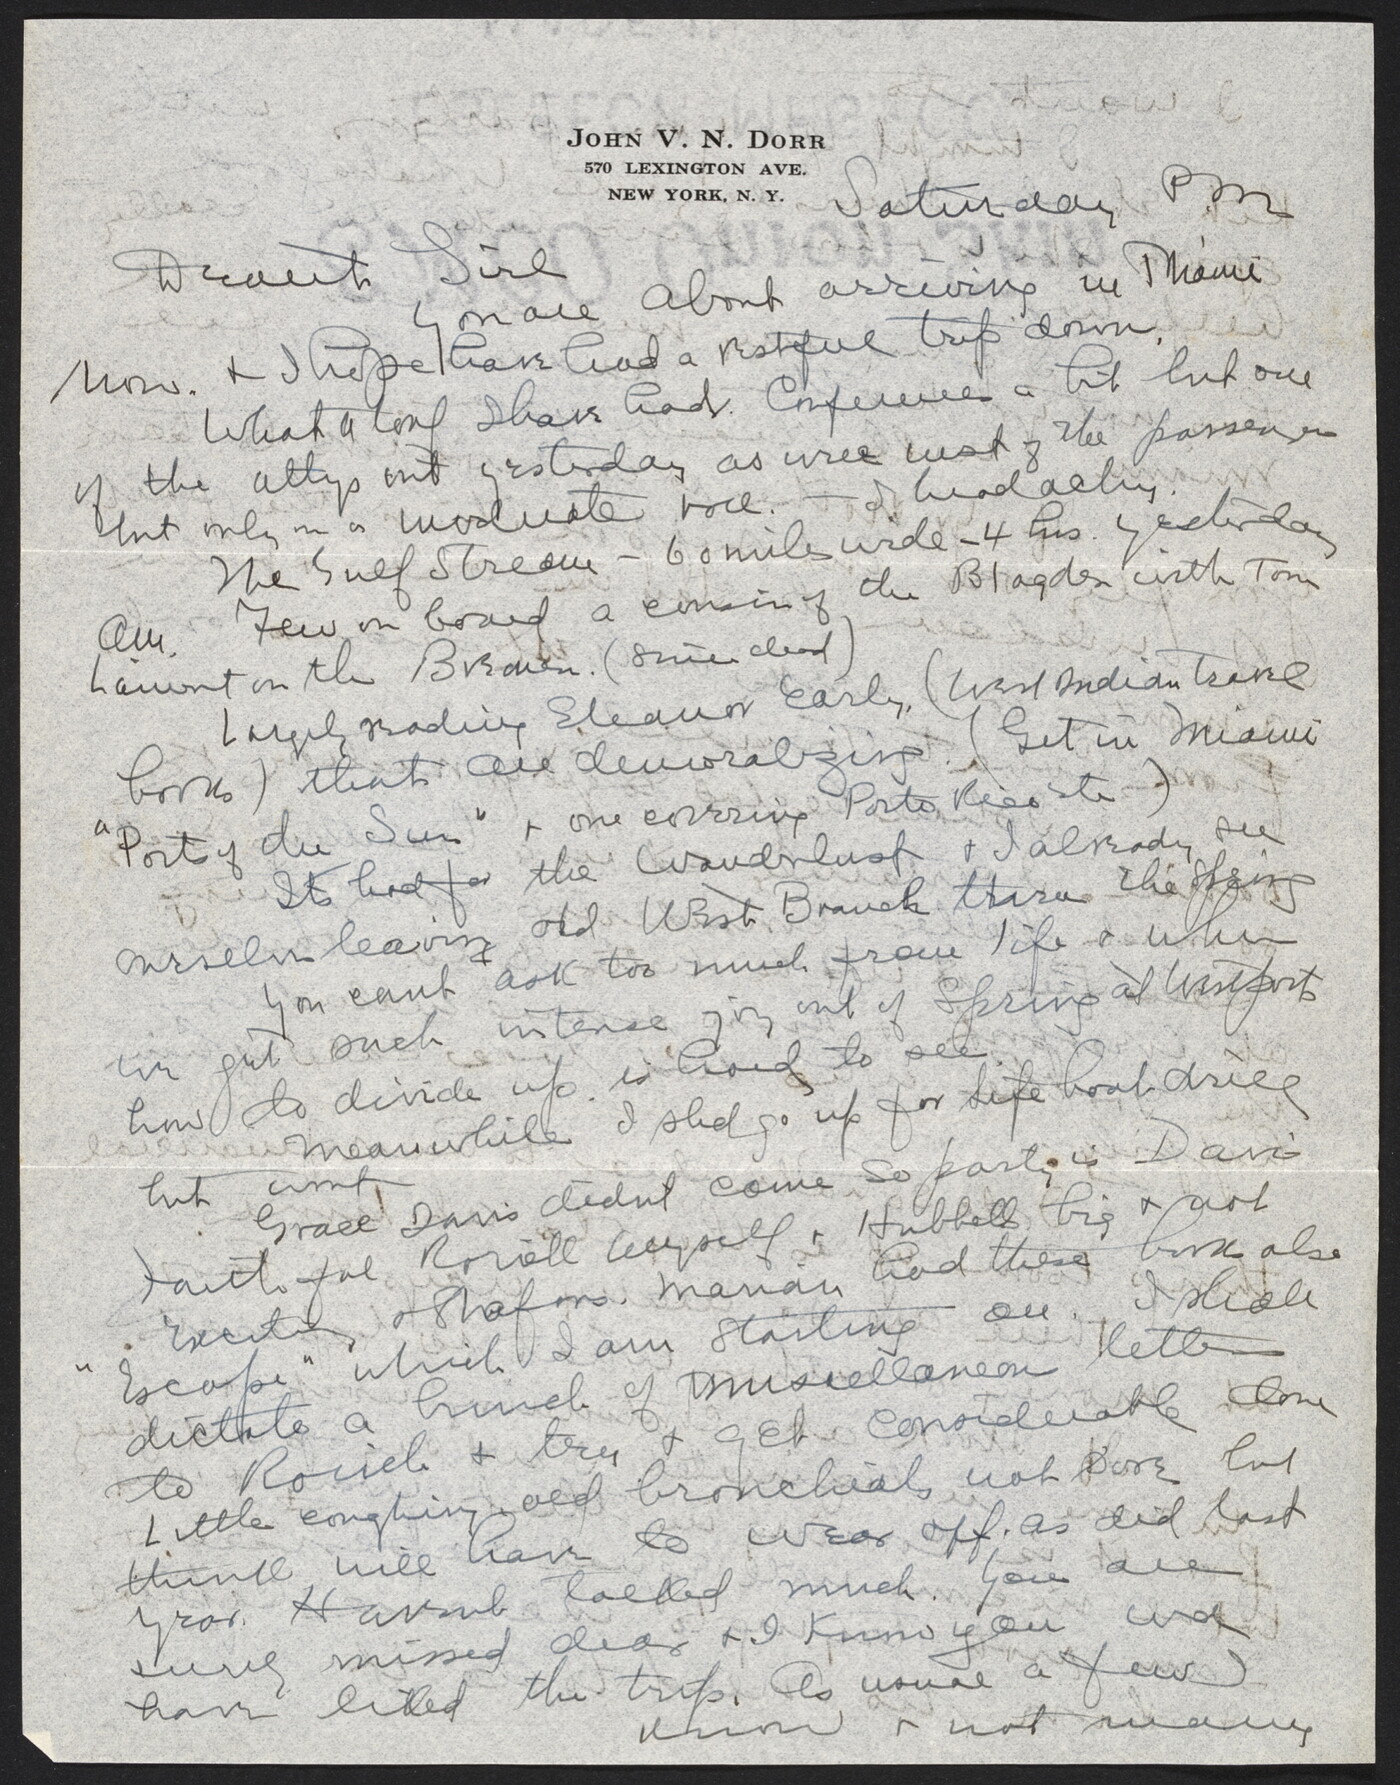 JOHN V. N. DORR
570 LEXINGTON AVE.
NEW YORK, N. Y.
Saturday P.M
Dearest Girl
You are about arriving in Miami
now. & I hope have had a restful trip down.
What a loaf I have had. Conference a bit but one
of the attys out yesterday as were most of the passengers
but only in a moderate roll. - I headachy.
The Gulf Stream - 60 miles wide - 4 hrs. yesterday
am. Few on board a cousin of the Blagden with Tom
Lamont on the Bremen. (since dead)
Largely reading Eleanor Early, (West Indian Travel
books) that are demoralizing. (Get in Miami
"Ports of the Sun" & one covering Porto Rico etc)
Its bad for the Wanderlust & I already see
ourselves leaving old West Branch thru the Spring
You cant ask too much from life & when
we get such intense joy out of Spring at Westport
how to divide up is hard to see.
Meanwhile I shd go up for life boat drill
but wont
Grace Davis didnt come so party is Davis
faithful myself & Hubbell, big & not
exciting & Marian had these books also
"Escape" which I am starting on. I shall
dictate a bunch of miscellaneous letters
to & try & get considerable done
Little coughing, old bronchials not sore but
think will have to wear off. as did last
year. Havent talked much. You are
surely missed dear & I know you wd
have liked the trip. As usual a few I
know & not many